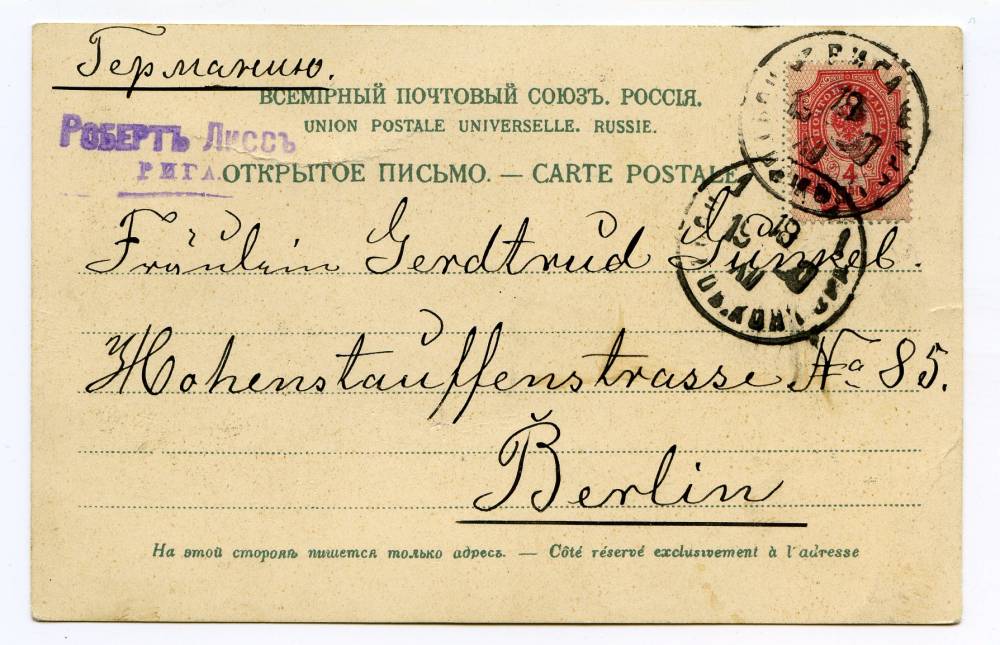 Германию.
ВСЕМІРНЫЙ ПОЧТОВЫЙ СОЮЗЪ. РОССІЯ.
UNION POSTALE UNIVERSELLE. RUSSIE.
РОБЕРТЪ ЛИССЪ
РИГА.
ОТКРЫТОЕ ПИСЬМО. — CARTE POSTALE.
РИГА
4
19
18
Fräulein Gerdtrud Günkel.
Hohenstauffenstrasse No 85.
Berlin
На этой сторонѣ пишется только адресъ. — Côté réservé exclusivement à l'adresse